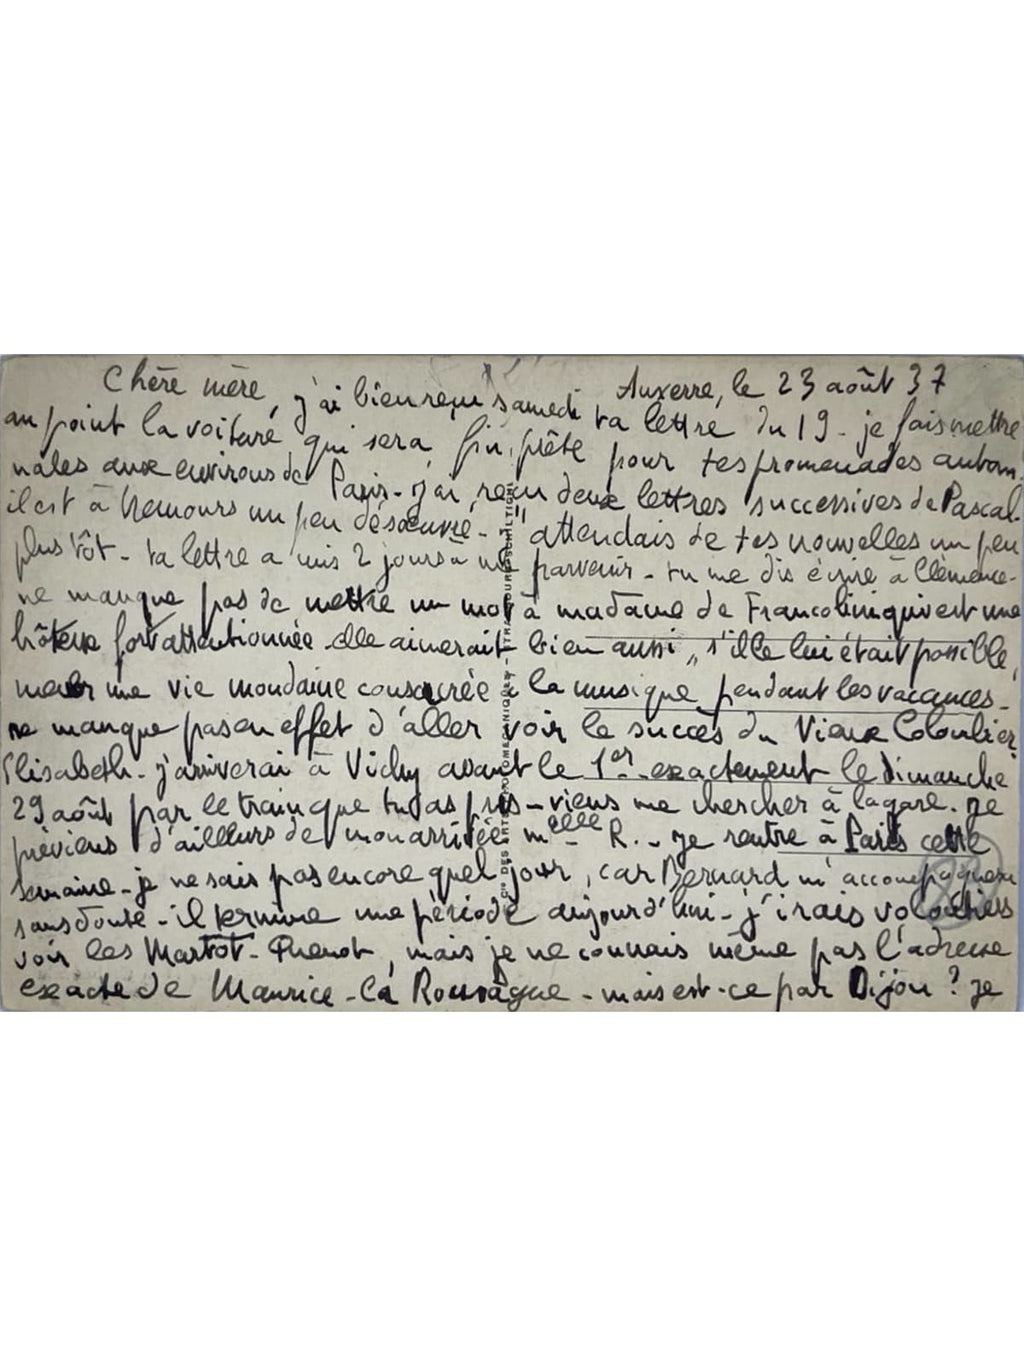 Auxerre, le 23 août 37
Chère mère, j'ai bien reçu samedi ta lettre du 19 - je fais mettre
au point la voiture qui sera fin prête pour tes promenades autom-
nales aux environs de Paris - j'ai reçu deux lettres successives de Pascal.
il est à Nemours un peu désœuvré - "j'attendais de tes nouvelles un peu
plus tôt - ta lettre a mis 2 jours à me parvenir - tu me dis écrire à Clémence -
ne manque pas de mettre un mot à madame de Francolini qui est une
hôtesse fort attentionnée - elle aimerait bien aussi, s'il lui était possible,
mener une vie mondaine consacrée à la musique pendant les vacances -
ne manque pas en effet d'aller voir le succès du Vieux Colombier
Elisabeth - j'arriverai à Vichy avant le 1er - exactement le dimanche
29 août par le train que tu as pris - viens me chercher à la gare. je
préviens d'ailleurs de mon arrivée melle R. - je rentre à Paris cette
semaine - je ne sais pas encore quel jour, car Bernard m'accompagnera
sans doute - il termine une période aujourd'hui - j'irais volontiers
voir les Martot - , mais je ne connais même pas l'adresse
exacte de Maurice - - mais est-ce par Dijon ? je
Cie DES ARTS PHOTOMÉCANIQUES - STRASBOURG-SCHILTIGH.